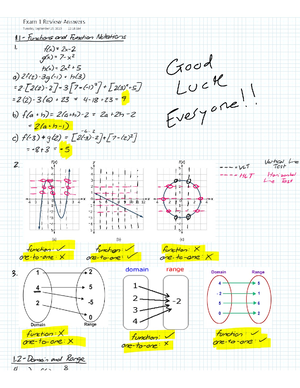 Exam 1 Review Answers
1.1 - Functions and Function Notations
1.
f(x) = 2x-2
g(x) = 7-x²
h(x) = 2x²+5
a) 2f(2)-3g(-1)+h(3)
= 2[2(2)-2]-3[7-(-1)²]+[2(3)²+5]
= 2(2)-3(6)+23 = 4-18+23 = 9
b) f(a+h) = 2(a+h)-2 = 2a+2h-2
= 2(a+h-1)
c) f(-3)+g(2) = [2(-3)-2]+[7-(2)²]
= -8+3 = -5
Good
Luck
Everyone!!
2.
VLT Vertical Line Test
HLT Horizontal Line Test
(a) (b) (c)
function: ✓ function: ✓ function: x
one-to-one x one-to-one: ✓ one-to-one: x
3.
domain range
Domain Range
1 4 2 -5
2 5 0 9
Domain Range
1
2
3
4
-2
function: x function: ✓ function: ✓
one-to-one: x one-to-one: x one-to-one: ✓
1.2 - Domain and Range